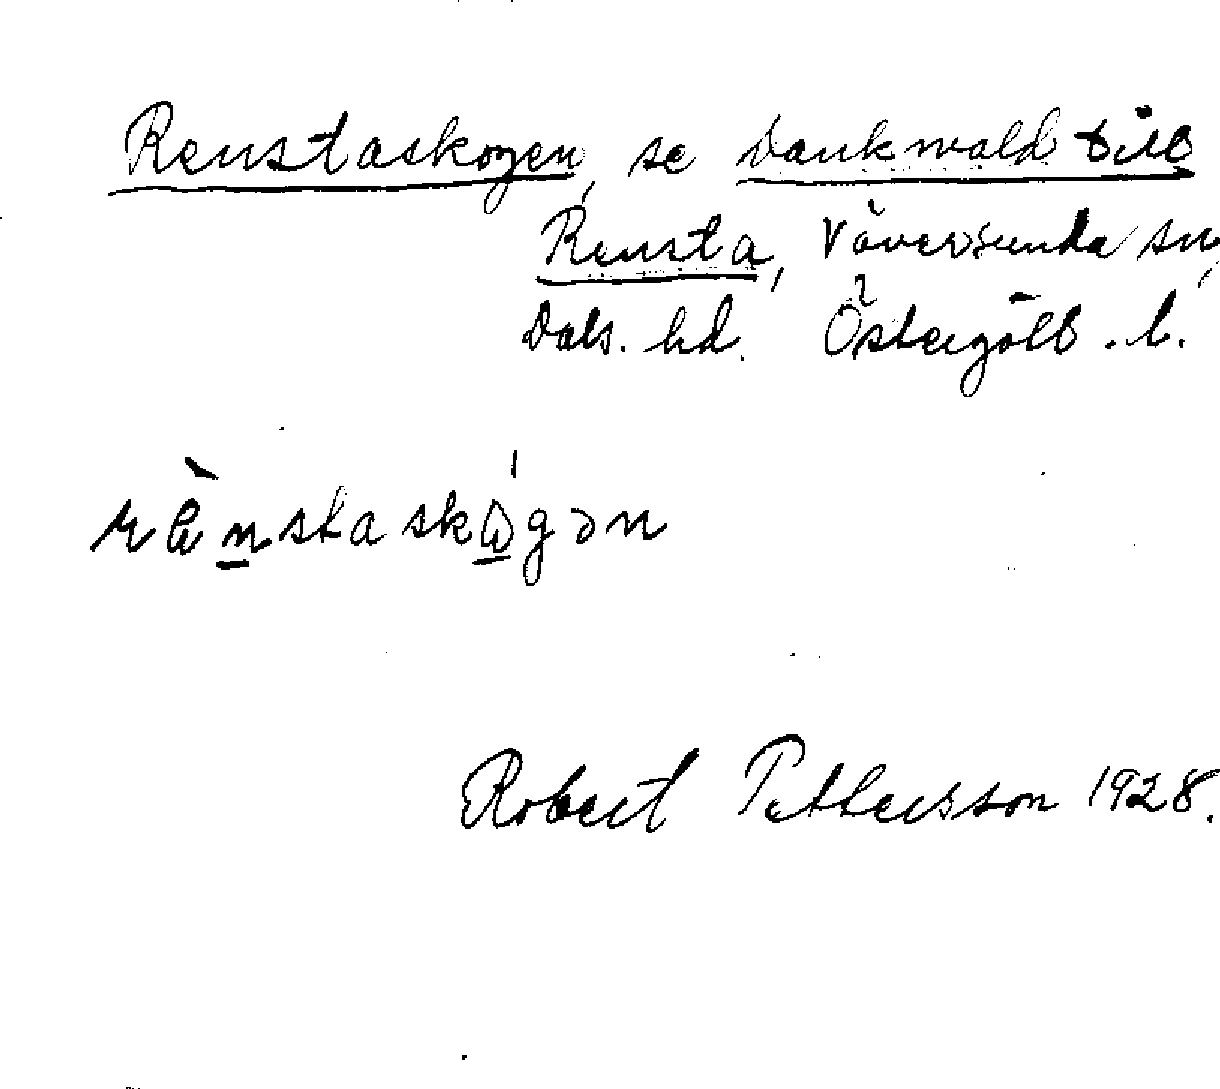 Renstaskogen, se Dankwald till
Rensta, Väversunda sn,
Dals. hd. Östergötl. l.
rä̀nstaskó̱gən
Robert Pettersson 1928.